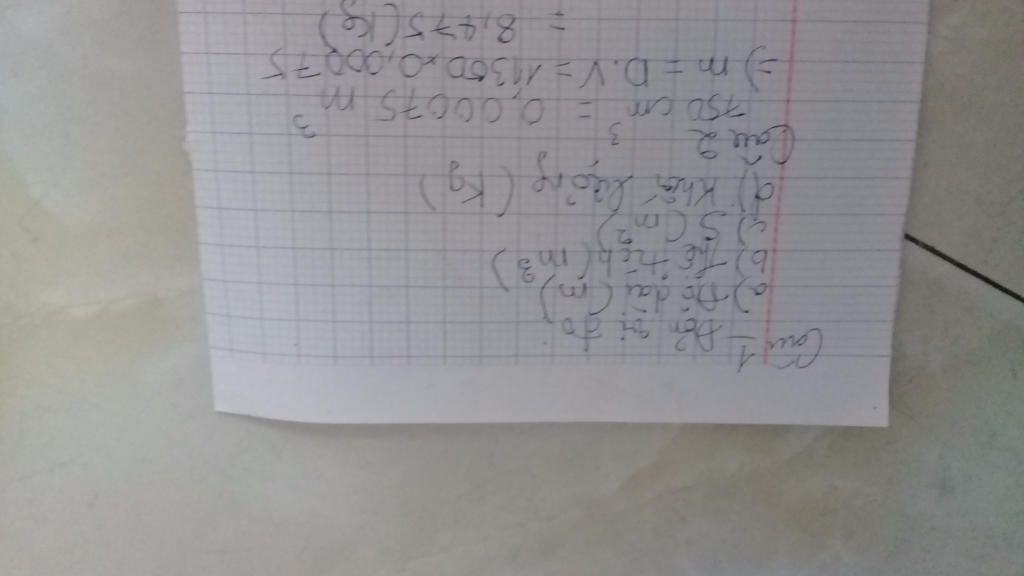 Câu 1
Đơn vị đo
a) Độ dài (m)
b) Thể tích (m³)
c) S (m²)
d) Khối lượng (Kg)
Câu 2
750 cm³ = 0,00075 m³
=> m = D.V = 11300 x 0,00075
= 8,475 (Kg)